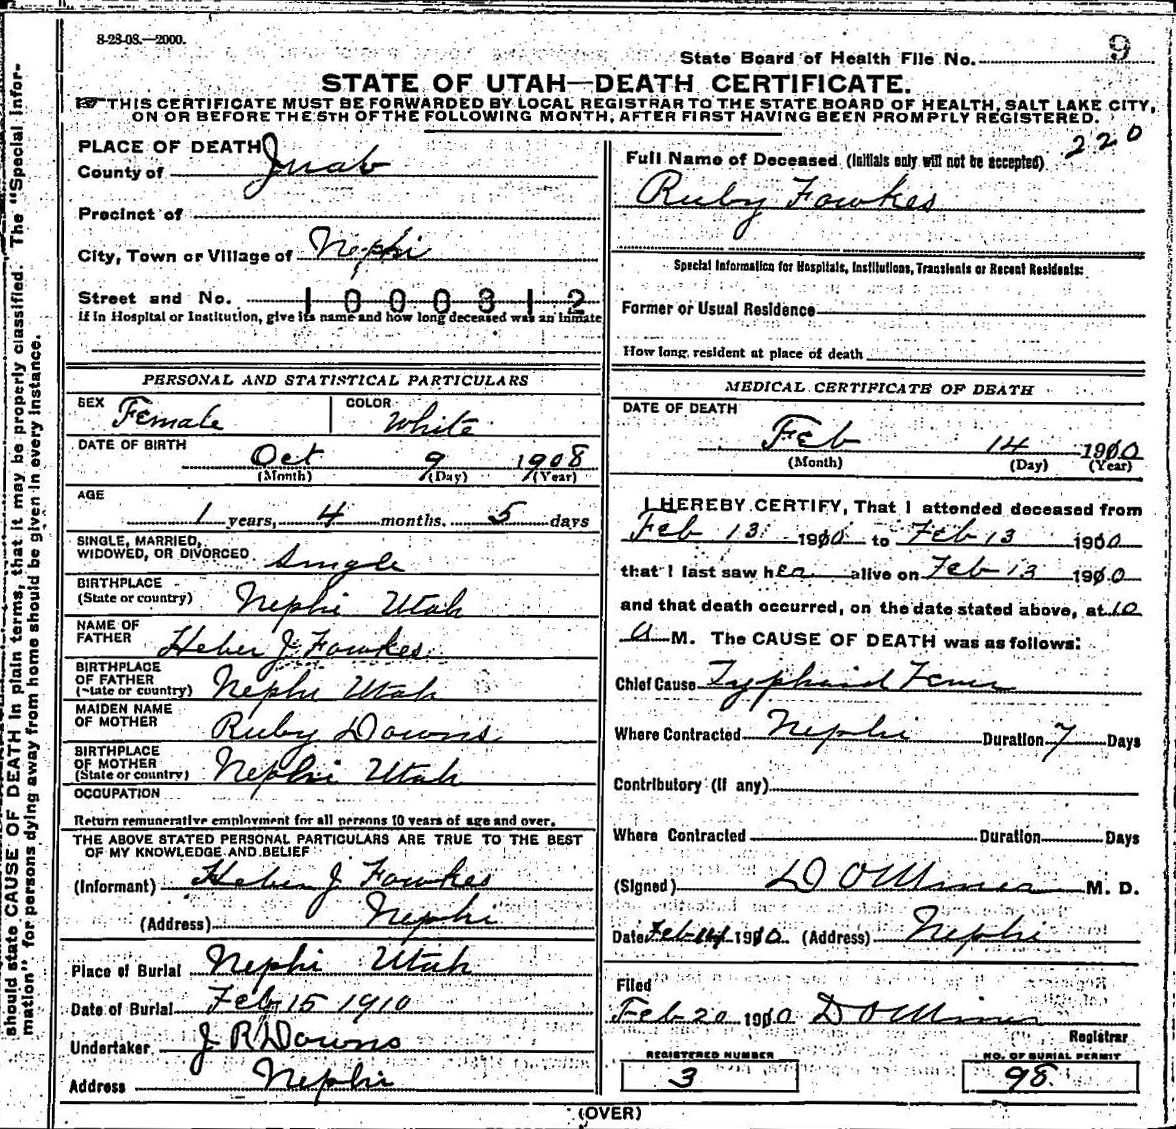 8-28-08.—2000.
State Board of Health File No. 9
STATE OF UTAH—DEATH CERTIFICATE.
THIS CERTIFICATE MUST BE FORWARDED BY LOCAL REGISTRAR TO THE STATE BOARD OF HEALTH, SALT LAKE CITY,
ON OR BEFORE THE 5TH OF THE FOLLOWING MONTH, AFTER FIRST HAVING BEEN PROMPTLY REGISTERED.
220
PLACE OF DEATH
County of Juab
Precinct of
City, Town or Village of Nephi
Street and No. 1000312
If in Hospital or Institution, give its name and how long deceased was an inmate
PERSONAL AND STATISTICAL PARTICULARS
SEX Female COLOR White
DATE OF BIRTH
Oct 9 1908
(Month) (Day) (Year)
AGE
1 years, 4 months, 5 days
SINGLE, MARRIED,
WIDOWED, OR DIVORCED Single
BIRTHPLACE
(State or country) Nephi Utah
NAME OF
FATHER Heber J. Fowkes
BIRTHPLACE
OF FATHER
(State or country) Nephi Utah
MAIDEN NAME
OF MOTHER Ruby Downs
BIRTHPLACE
OF MOTHER
(State or country) Nephi Utah
OCCUPATION
Return remunerative employment for all persons 10 years of age and over.
THE ABOVE STATED PERSONAL PARTICULARS ARE TRUE TO THE BEST
OF MY KNOWLEDGE AND BELIEF
(Informant) Heber J Fowkes
(Address) Nephi
Place of Burial Nephi Utah
Date of Burial Feb 15 1910
Undertaker J R Downs
Address Nephi
Full Name of Deceased (Initials only will not be accepted)
Ruby Fowkes
Special Information for Hospitals, Institutions, Transients or Recent Residents:
Former or Usual Residence
How long resident at place of death
MEDICAL CERTIFICATE OF DEATH
DATE OF DEATH
Feb 14 1910
(Month) (Day) (Year)
I HEREBY CERTIFY, That I attended deceased from
Feb 13 1910 to Feb 13 1910
that I last saw her alive on Feb 13 1910
and that death occurred, on the date stated above, at 10
a M. The CAUSE OF DEATH was as follows:
Chief Cause Typhoid Fever
Where Contracted Nephi Duration 7 Days
Contributory (if any)
Where Contracted Duration Days
(Signed) D O Miner M. D.
Date Feb 14 1910 (Address) Nephi
Filed
Feb 20 1910 D O Miner
Registrar
REGISTERED NUMBER
3
NO. OF BURIAL PERMIT
98.
(OVER)
should state CAUSE OF DEATH in plain terms, that it may be properly classified. The "Special Infor-
mation" for persons dying away from home should be given in every instance.